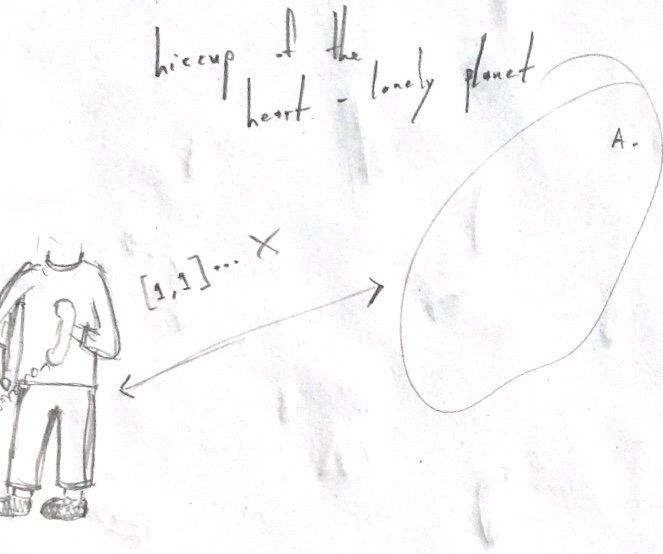 hiccup of the
heart - lonely planet
A.
[1,1]... X